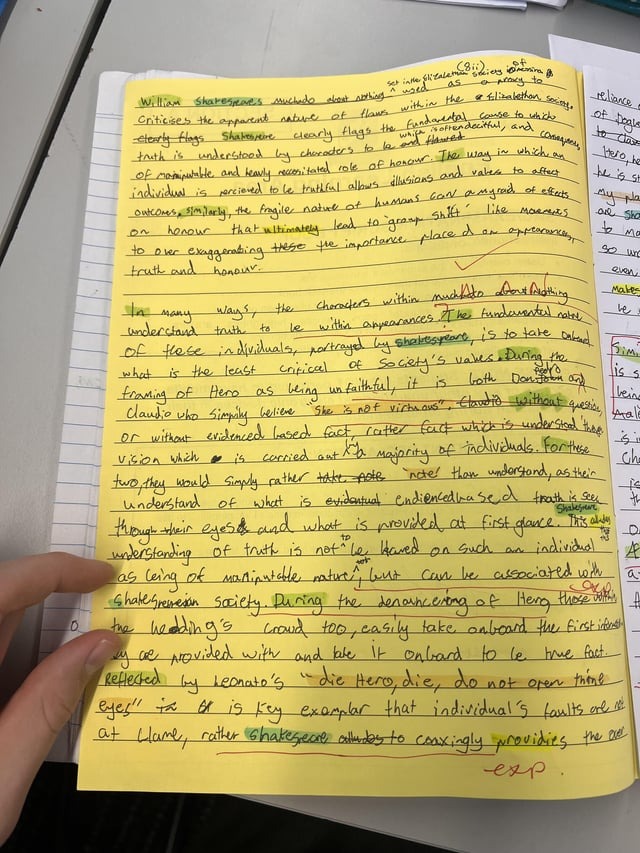 (8ii)
set in the Elizabethan society of Messina
William Shakespeares muchado about nothing ^ used as a proxy to
Criticises the apparent nature of flaws within the Elizabethan society.
clearly flags Shakespeare clearly flags the fundamental cause to which
truth is understood by characters to be and flawed which is often deceitful, and consequences
of manipulable and heavily necessitated role of honour. The way in which an
individual is percieved to be truthful allows illusions and values to affect
outcomes, similarly, the fragile nature of humans can a myrad of effects
on honour that ultimately lead to 'group shift' like
to over exaggerating these the importance placed on appearances,
truth and honour.
In many ways, the characters within muchado about Nothing
understand truth to be within appearances. The fundamental nature
of these individuals, portrayed by Shakespeare, is to take onboard
what is the least critical of society's values. During the
framing of Hero as being unfaithful, it is both Don Pedro and
Claudio who simplily believe "She is not virtuous". Claudio Without question
or without evidenced based fact, rather fact which is understood through
vision which is carried out by a majority of individuals. For these
two, they would simply rather take note 'note' than understand, as their
understand of what is evidentual endienced based truth is seen
through their eyes and what is provided at first glance. This Shakespeare alludes
understanding of truth is not to be blamed on such an individual
as being of manipulable nature, but can be associated with
Shakespearean society. During the denouncing of Hero those within
the wedding's crowd too, easily take onboard the first information
they are provided with and take it onboard to be true fact.
Reflected by Leonato's "die Hero, die, do not open thine
eyes" is key exemplar that individual's faults are not
at blame, rather Shakespeare alludes to coaxingly providies the over
exp.
reliance
of Dogb
to Claud
Hero, he
he is st
my pla
are Sha
to Ma
so w
even
makes
be
Simi
is s
being